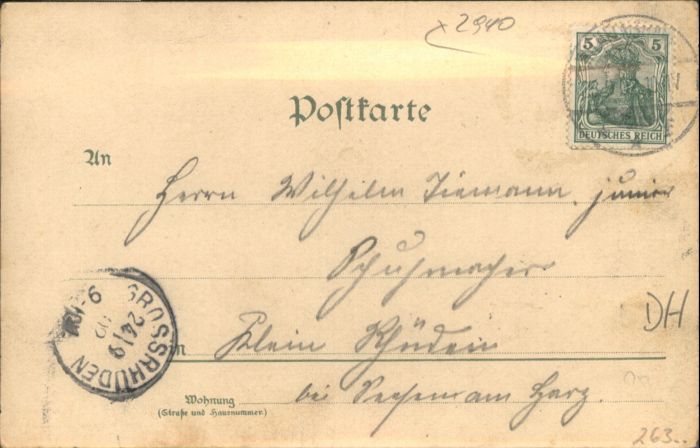 x 2940
5 5
DEUTSCHES REICH
Postkarte
An
Herrn Wilhelm Tiemann junior
Schuhmacher
GROSSRHÜDEN
24/9
02
6-7N
in Klein Rhüden
DH
Wohnung
(Straße und Hausnummer)
bei Seesen am Harz.
263.-